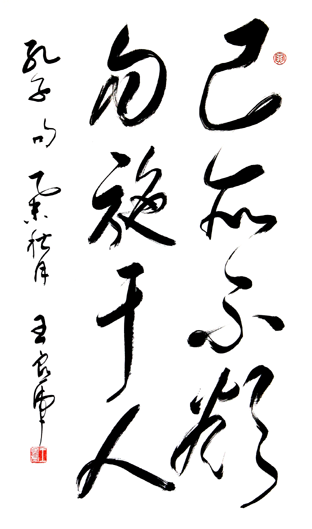 己所不欲
勿施于人
孔子句 乙未秋月 王